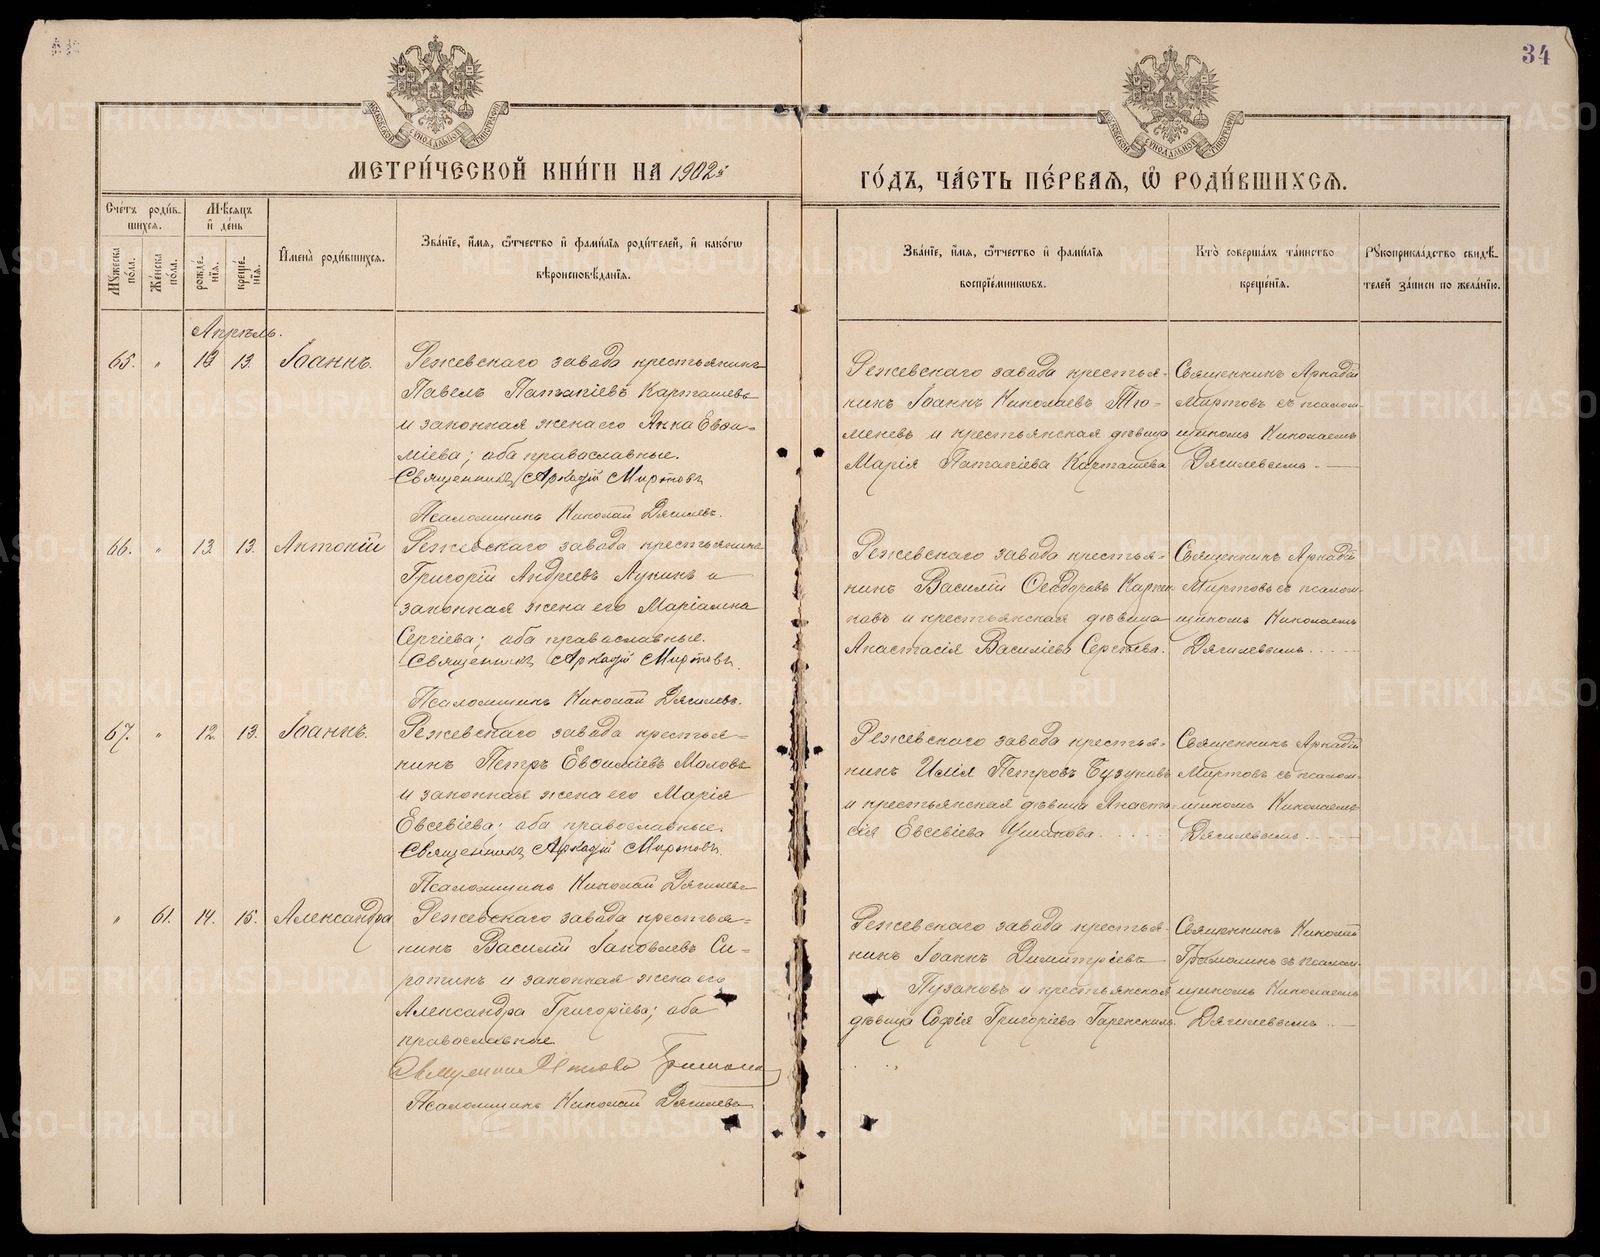 34
МЕТРИ́ЧЕСКОЙ КНИ́ГИ НА 1902й
ГО́ДЪ, ЧА́СТЬ ПЕ́РВАЯ, Ѡ҆ РОДИ́ВШИХСЯ.
Сче́тъ роди́в-
шихся.
Мꙋ́жеска по́ла.
Же́нска по́ла.
Мѣ́сяцъ
и҆ де́нь
рожде́-нїя.
креще́-нїя.
И҆мена̀ роди́вшихся.
Зва́нїе, и҆́мя, ѻ҆́тчество и҆ фами́лїя роди́телей, и҆ како́гѡ
вѣроисповѣ́данїя.
Зва́нїе, и҆́мя, ѻ҆́тчество и҆ фами́лїя
воспрїе́мникѡвъ.
Кто̀ соверша́лъ та́инство
креще́нїя.
Рꙋкоприкла́дство свидѣ́-
телей за́писи по жела́нїю.
Апрѣль.
65. " 13 13. Іоаннъ.
Режевскаго завода крестьянинъ
Павелъ Патапіевъ Карташевъ
и законная жена его Анна Евѳи-
міева; оба православные.
Священникъ Аркадій Миртовъ
Псаломщикъ Николай Дягилевъ.
Режевскаго завода крестья-
нинъ Іоаннъ Николаевъ Тю-
меневъ и крестьянская дѣвица
Марія Патапіева Карташева
Священникъ Аркадій
Миртовъ съ псалом-
щикомъ Николаемъ
Дягилевымъ.
66. " 13. 13. Антоній
Режевскаго завода крестьянинъ
Григорій Андреевъ Лукинъ и
законная жена его Маріамна
Сергіева; оба православные.
Священникъ Аркадій Миртовъ.
Псаломщикъ Николай Дягилевъ.
Режевскаго завода крестья-
нинъ Василій Ѳеодоровъ
и крестьянская дѣвица
Анастасія Василіева
Священникъ Аркадій
Миртовъ съ псалом-
щикомъ Николаемъ
Дягилевымъ.
67. " 12. 13. Іоаннъ.
Режевскаго завода крестья-
нинъ Петръ Евѳиміевъ Маловъ
и законная жена его Марія
Евсевіева; оба православные.
Священникъ Аркадій Миртовъ.
Псаломщикъ Николай Дягилевъ
Режевскаго завода крестья-
нинъ Илія Петровъ Бузуновъ
и крестьянская дѣвица Анаста-
сія Евсевіева Ушакова.
Священникъ Аркадій
Миртовъ съ псалом-
щикомъ Николаемъ
Дягилевымъ.
" 61. 14. 15. Александра
Режевскаго завода крестья-
нинъ Василій Іаковлевъ Си-
ротинъ и законная жена его
Александра Григоріева; оба
православные
Священникъ
Псаломщикъ Николай Дягилевъ
Режевскаго завода крестья-
нинъ Іоаннъ Димитріевъ
Пузановъ и крестьянская
дѣвица Софія Григоріева
Священникъ Николай
съ псалом-
щикомъ Николаемъ
Дягилевымъ.
METRIKI.GASO-URAL.RU